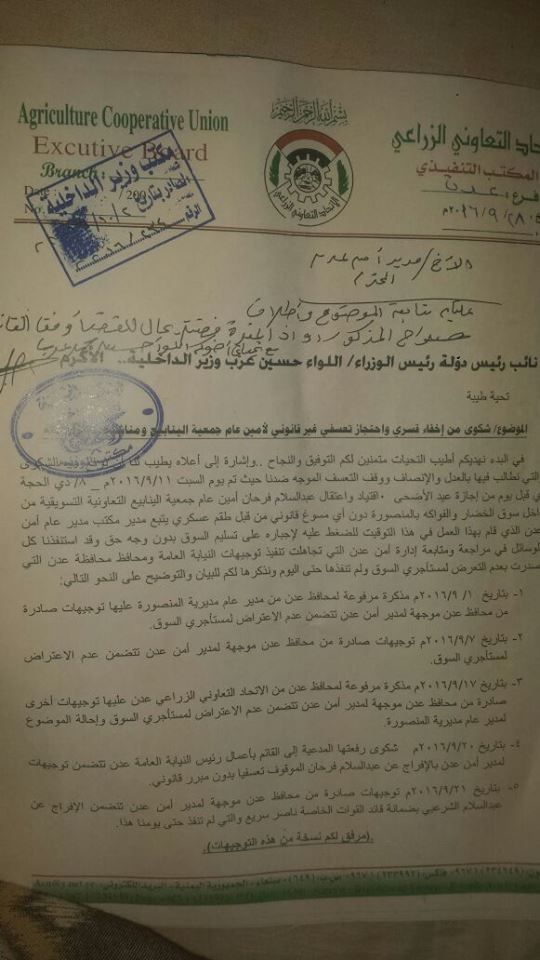 بسم الله الرحمن الرحيم
Agriculture Cooperative Union
Excutive Board
Branch:
Date: / /200
No.
الاتحاد التعاوني الزراعي
المكتب التنفيذي
فرع: عدن
٢٠١٦/٩/٢٨م
مكتب وزير الداخلية
الصادر بتاريخ
الرقم
الأخ/ مدير أمن عدن
المحترم
عليكم متابعة الموضوع وإطلاق
نائب رئيس دولة رئيس الوزراء/ اللواء حسين عرب وزير الداخلية.. الأكرم
تحية طيبة
الموضوع/ شكوى من إخفاء قسري واحتجاز تعسفي غير قانوني لأمين عام جمعية الينابيع
في البدء نهديكم أطيب التحيات متمنين لكم التوفيق والنجاح ..وإشارة إلى أعلاه يطيب لنا الشكوى
التي نطالب فيها بالعدل والإنصاف ووقف التعسف الموجه ضدنا حيث تم يوم السبت ٢٠١٦/٩/١١م _ ٨/ذي الحجة
قبل يوم من إجازة عيد الأضحى ٠اقتياد واعتقال عبدالسلام فرحان أمين عام جمعية الينابيع التعاونية التسويقية من
داخل سوق الخضار والفواكه بالمنصورة دون أي مسوغ قانوني من قبل طقم عسكري يتبع مدير مكتب مدير عام أمن
عدن الذي قام بهذا العمل في هذا التوقيت للضغط عليه لإجباره على تسليم السوق بدون وجه حق وقد استنفذنا كل
الوسائل في مراجعة ومتابعة إدارة أمن عدن التي تجاهلت تنفيذ توجيهات النيابة العامة ومحافظ محافظة عدن التي
صدرت بعدم التعرض لمستأجري السوق ولم تنفذها حتى اليوم ونذكرها لكم للبيان والتوضيح على النحو التالي:
١- بتاريخ ٢٠١٦/٩/١م مذكرة مرفوعة لمحافظ عدن من مدير عام مديرية المنصورة عليها توجيهات صادرة
من محافظ عدن موجهة لمدير أمن عدن تتضمن عدم الاعتراض لمستأجري السوق.
٢- بتاريخ ٢٠١٦/٩/٧م توجيهات صادرة من محافظ عدن موجهة لمدير أمن عدن تتضمن عدم الاعتراض
لمستأجري السوق.
٣- بتاريخ ٢٠١٦/٩/١٧م مذكرة مرفوعة لمحافظ عدن من الاتحاد التعاوني الزراعي عدن عليها توجيهات أخرى
صادرة من محافظ عدن موجهة لمدير أمن عدن تتضمن عدم الاعتراض لمستأجري السوق وإحالة الموضوع
لمدير عام مديرية المنصورة.
٤- بتاريخ ٢٠١٦/٩/٢٠م شكوى رفعتها المدعية إلى القائم بأعمال رئيس النيابة العامة عدن تتضمن توجيهات
لمدير أمن عدن بالإفراج عن عبدالسلام فرحان الموقوف تعسفيا بدون مبرر قانوني.
٥- بتاريخ ٢٠١٦/٩/٢١م توجيهات صادرة من محافظ عدن موجهة لمدير أمن عدن تتضمن الإفراج عن
عبدالسلام الشرعبي بضمانة قائد القوات الخاصة ناصر سريع والتي لم تنفذ حتى يومنا هذا.
(مرفق لكم نسخة من هذه التوجيهات).